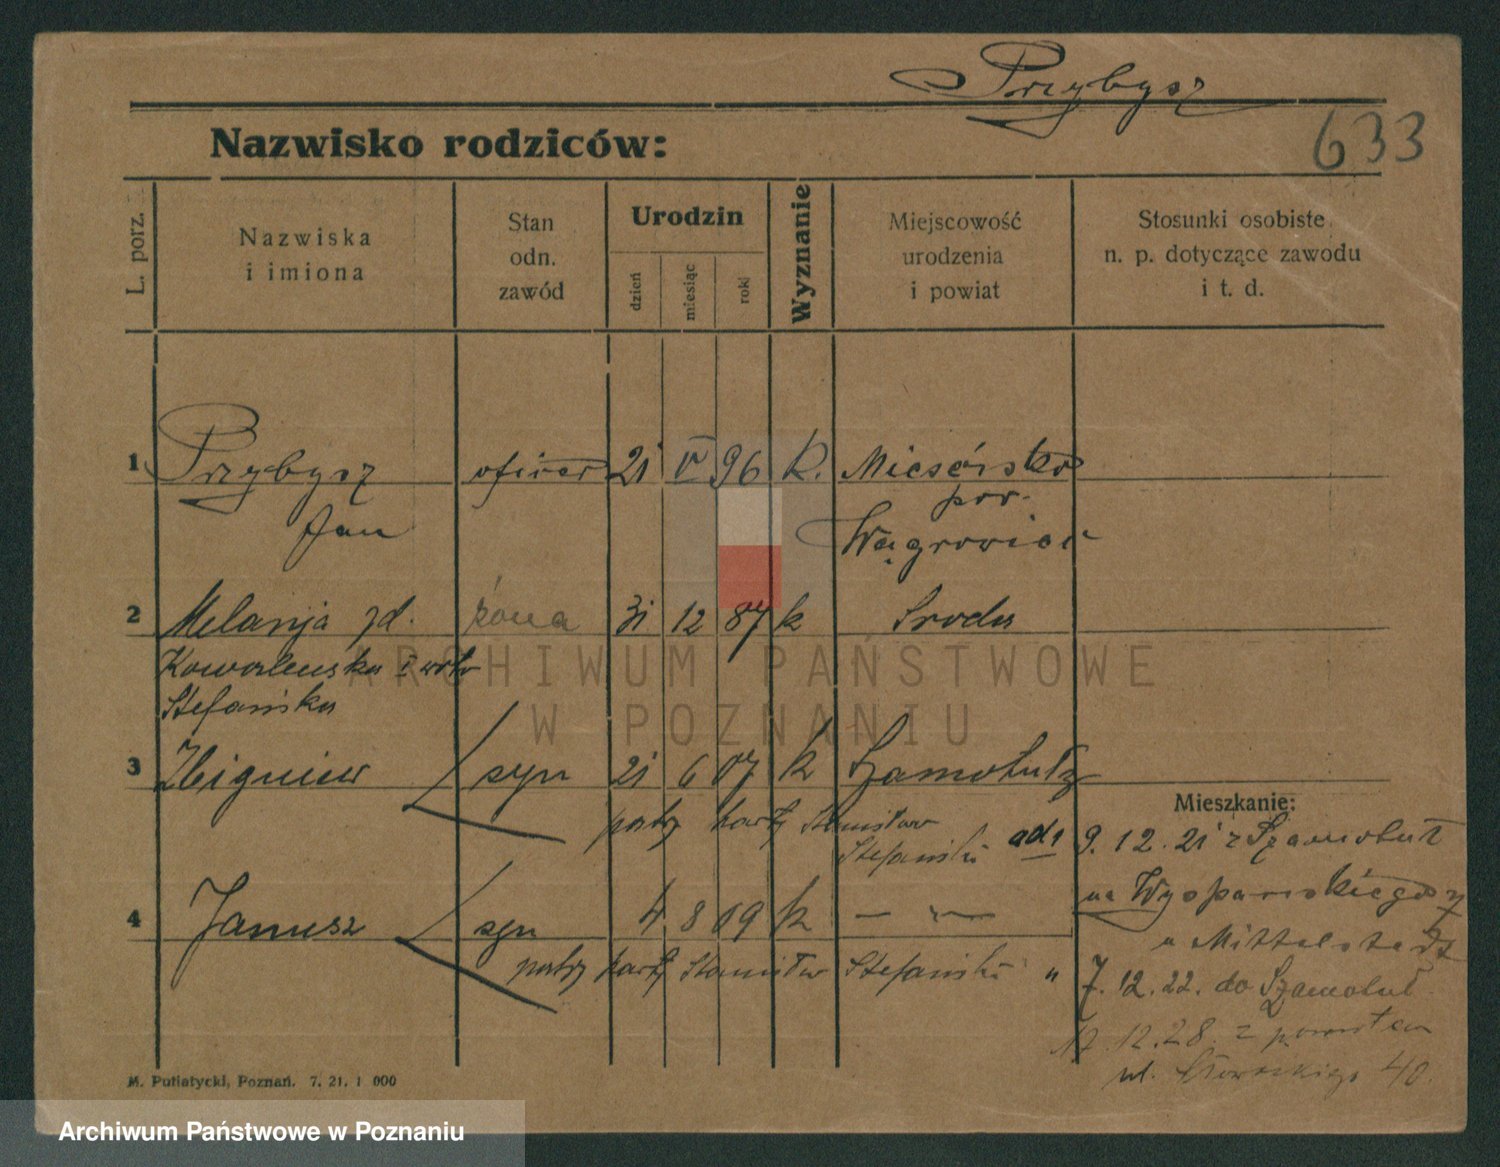 Przybysz
Nazwisko rodziców:
633
L. porz.
Nazwiska
i imiona
Stan
odn.
zawód
Urodzin
dzień
miesiąc
rok
Wyznanie
Miejscowość
urodzenia
i powiat
Stosunki osobiste
n. p. dotyczące zawodu
i t. d.
1 Przybysz oficer 21 V 96 k.
pow.
Jan Wągrowiec
2 Melanja zd. żona 31 12 87 k Sroda
Stefańska
3 Zbigniew syn 21 6 07 k Szamotuły
patrz kartę Stanisław
Stefański ad 1
Mieszkanie:
9. 12. 21 z Szamotuł
na Wyspiańskiego
u Mittelstadt
4 Janusz syn 4 8 09 k — " —
patrz kartę Stanisław Stefański "
7. 12. 22. do Szamotuł
17 12. 28. z powrotem
ul. Słowackiego 40.
M. Putiatycki, Poznań. 7. 21. 1 000
ARCHIWUM PAŃSTWOWE
W POZNANIU
Archiwum Państwowe w Poznaniu